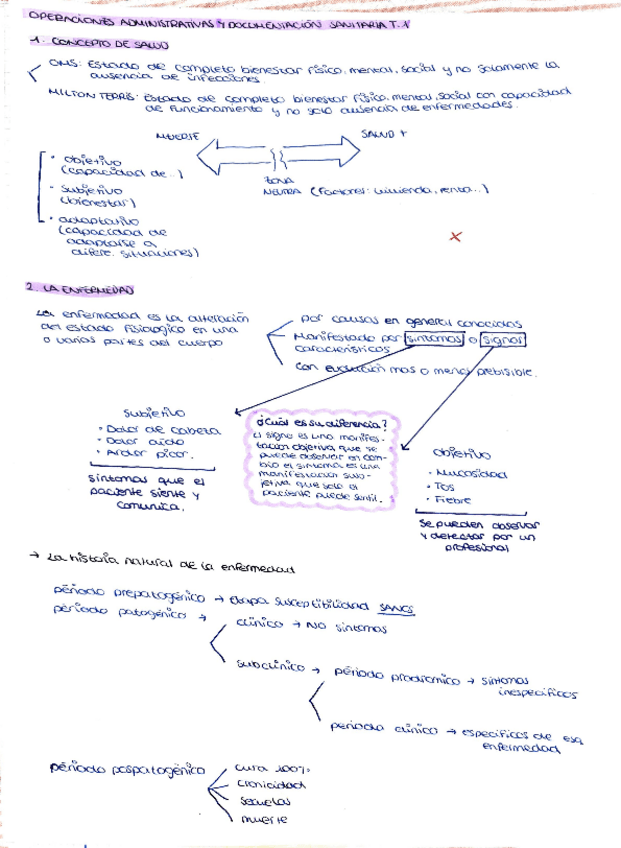 OPERACIONES ADMINISTRATIVAS Y DOCUMENTACIÓN SANITARIA T.1
1. CONCEPTO DE SALUD
OMS: Estado de completo bienestar físico, mental, social y no solamente la
ausencia de infecciones
MILTON TERRIS: Estado de completo bienestar físico, mental, social con capacidad
de funcionamiento y no solo ausencia de enfermedades.
MUERTE
SALUD +
ZONA
NEUTRA (Factores: vivienda, renta...)
• objetivo
(capacidad de...)
• subjetivo
(bienestar)
• adaptativo
(capacidad de
adaptarse a
difere. situaciones)
2. LA ENFERMEDAD
La enfermedad es la alteración
del estado fisiologico en una
o varias partes del cuerpo
por causas en general conocidas
Manifestado por síntomas o signos
característicos
Con evolución mas o menos prebisible.
subjetivo
• Dolor de cabeza
• Dolor oído
• Ardor picor.
síntomas que el
paciente siente y
comunica.
¿Cuál es su diferencia?
El signo es una manifes-
tación objetiva que se
puede observar en cam-
bio el síntoma es una
manifestación sub-
jetiva que solo el
paciente puede sentir.
objetivo
• Mucosidad
• Tos
• Fiebre
Se pueden observar
y detectar por un
profesional
→ La historia natural de la enfermedad
período prepatogénico → Etapa susceptibilidad SANOS
período patogénico →
clínico → NO síntomas
subclínico → período prodrómico → síntomas
inespecíficos
periodo clínico → específicos de esa
enfermedad
período pospatogénico
cura 100%
cronicidad
secuelas
muerte